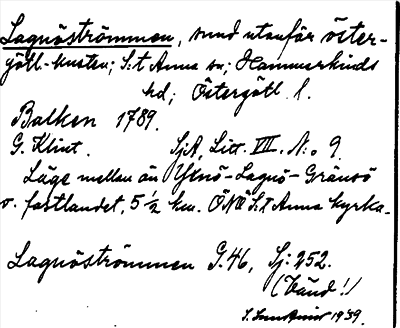 Lagnöströmmen, sund utanför öster-
götl-kusten; S:t Anna sn; Hammarkinds
hd; Östergötl. l.
Balken 1789.
G. Klint. SjA, Litt. VII. N:o 9.
Läge mellan ön Yxnö-Lagnö-Gränsö
o. fastlandet, 5 1/2 km. ÖNÖ S:t Anna kyrka.
Lagnöströmmen G.46, Sj: 252.
(Länd!)
1939.